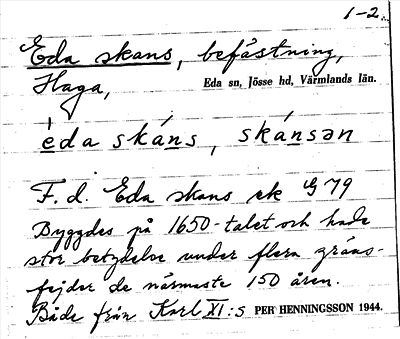 1-2.
Eda skans, befästning,
Haga, Eda sn, Jösse hd, Värmlands län.
èda skáns, skánsən
F.d. Eda skans ek G 79
Byggdes på 1650-talet och hade
stor betydelse under flera gräns-
fejder de närmaste 150 åren.
Både från Karl XI:s PER HENNINGSSON 1944.